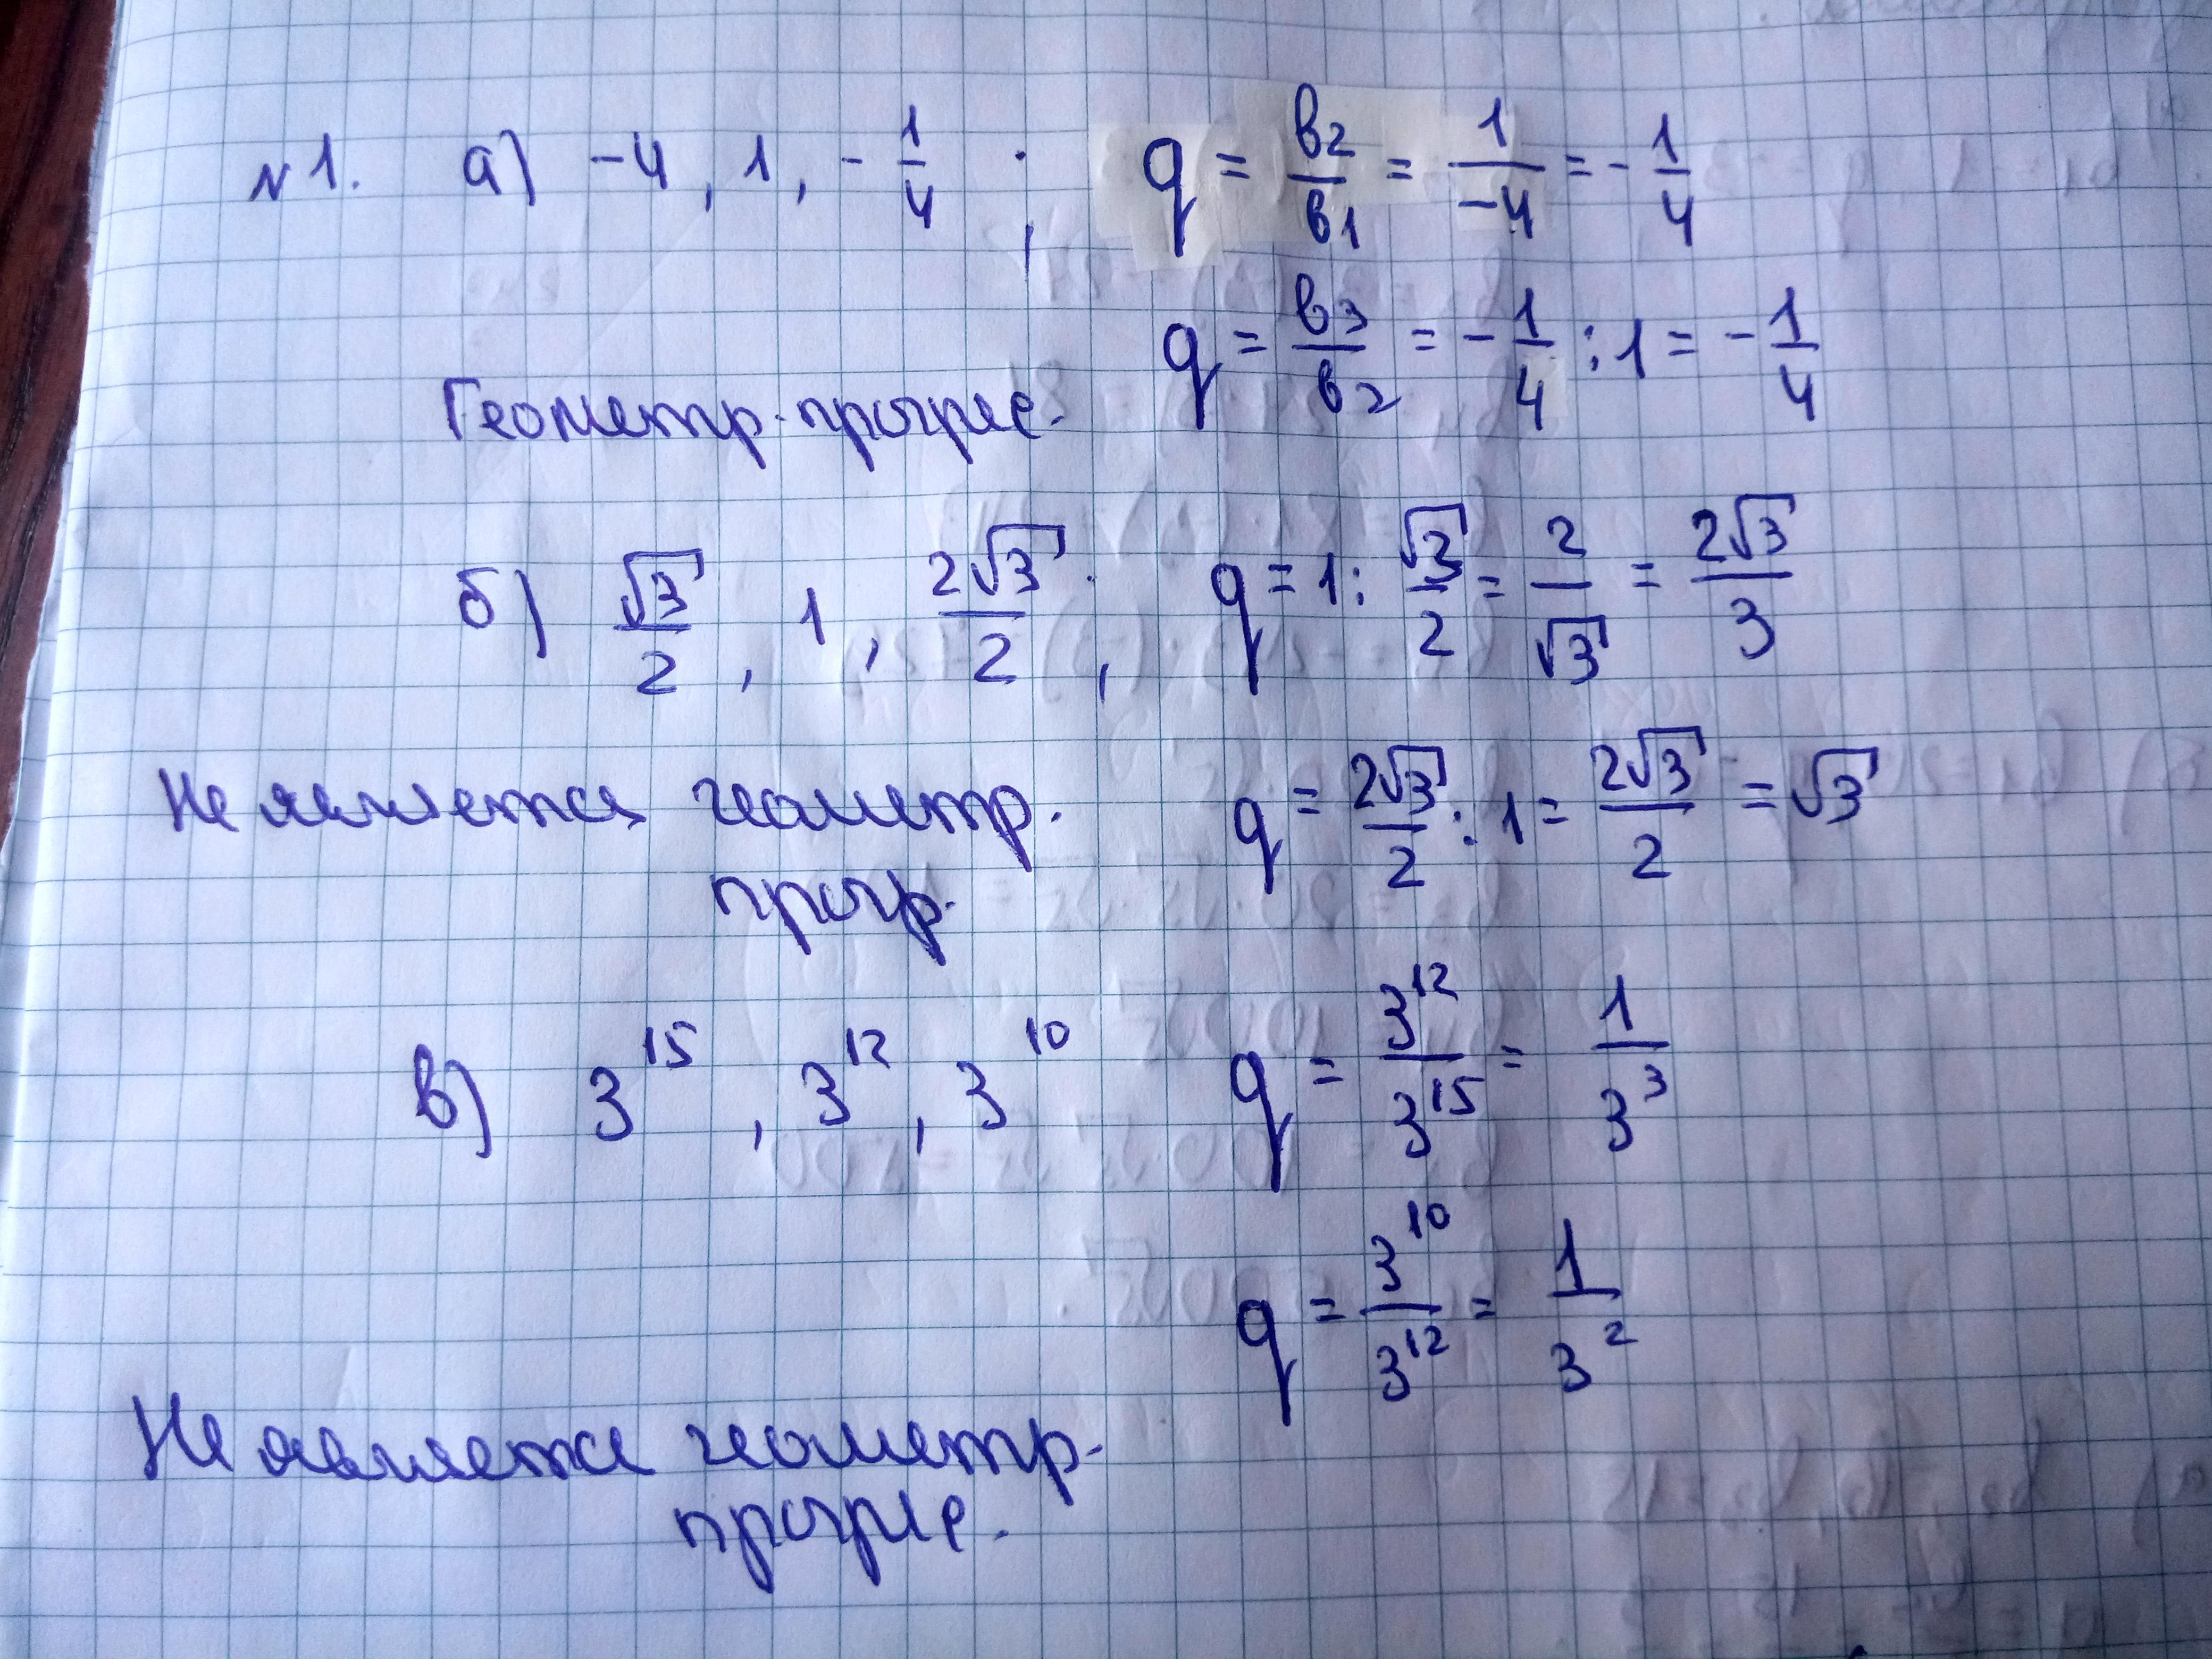 №1. а) -4, 1, -1/4; q = b2/b1 = 1/-4 = -1/4
q = b3/b2 = -1/4 : 1 = -1/4
Геометр. прогрес.
б) √3/2, 1, 2√3/2; q = 1 : √3/2 = 2/√3 = 2√3/3
Не является геометр. q = 2√3/2 : 1 = 2√3/2 = √3
прогр.
в) 3^15, 3^12, 3^10 q = 3^12/3^15 = 1/3^3
q = 3^10/3^12 = 1/3^2
Не является геометр.
прогрес.